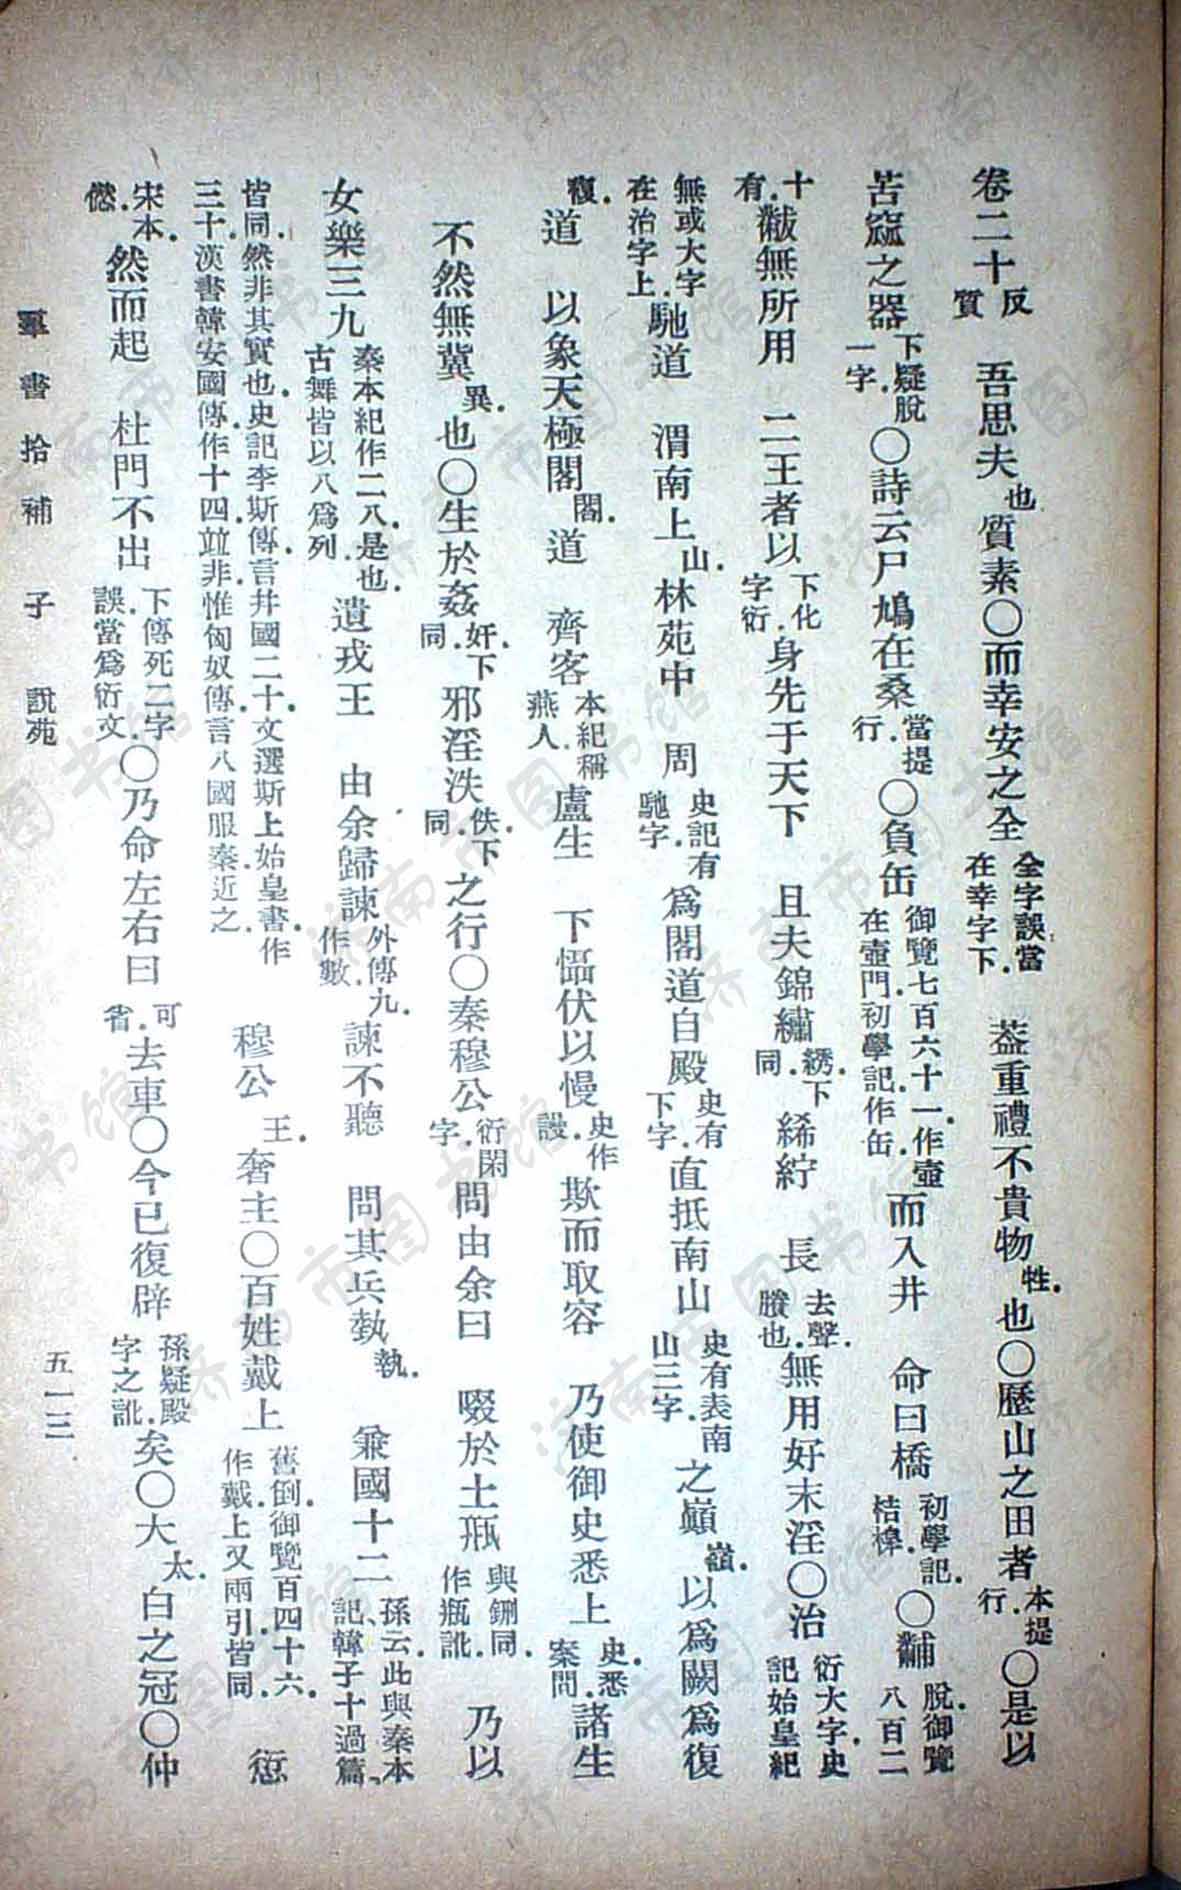 卷二十反質　吾思夫也質素〇而幸安之全全字誤當在幸字下.　葢重禮不貴物牲.也〇歷山之田者本提行.〇是以
苦窳之器下疑脫一字.〇詩云尸鳩在桑當提行.〇負缶御覽七百六十一.作壺在壺門.初學記作缶.而入井　命曰橋初學記.桔橰.〇黼脫.御覽八百二
十有.黻無所用　二王者以下化字衍.身先于天下　且夫錦繡綉.下同.絺紵　長去聲.賸也.無用好末淫〇治衍大字.史記始皇紀
無或大字在治字上.馳道　渭南上山.林苑中　周史記有馳字.為閣道自殿史有下字.直抵南山史有表南山三字.之巔嶺.以為闕為復
複.道　以象天極閣閣.道　齊客本紀稱燕人.盧生　下慴伏以慢史作謾.欺而取容　乃使御史悉上史.悉案問.諸生
不然無冀異.也〇生於姦奸.下同.邪淫泆佚.下同.之行〇秦穆公衍閑字.問由余曰　啜於土㼵與鉶同.作瓶訛.　乃以
女樂三九秦本紀作二八.是也.古舞皆以八為列.遺戎王　由余歸諫外傳九.作數.諫不聽　問其兵埶執.　兼國十二孫云.此與秦本記、韓子十過篇、
皆同.然非其實也.史記李斯傳.言幷國二十.文選斯上始皇書.作三十.漢書韓安國傳.作十四.竝非.惟匈奴傳.言八國服秦近之.　穆公王.奢主〇百姓戴上舊倒.御覽百四十六.作戴上.又兩引.皆同.　愆
宋本.僽.然而起　杜門不出下傳死二字誤.當為衍文.〇乃命左右曰可.省.去車〇今已復辟孫疑殿字之訛.矣〇大太.白之冠〇仲
羣書拾補　子　說苑　五一三